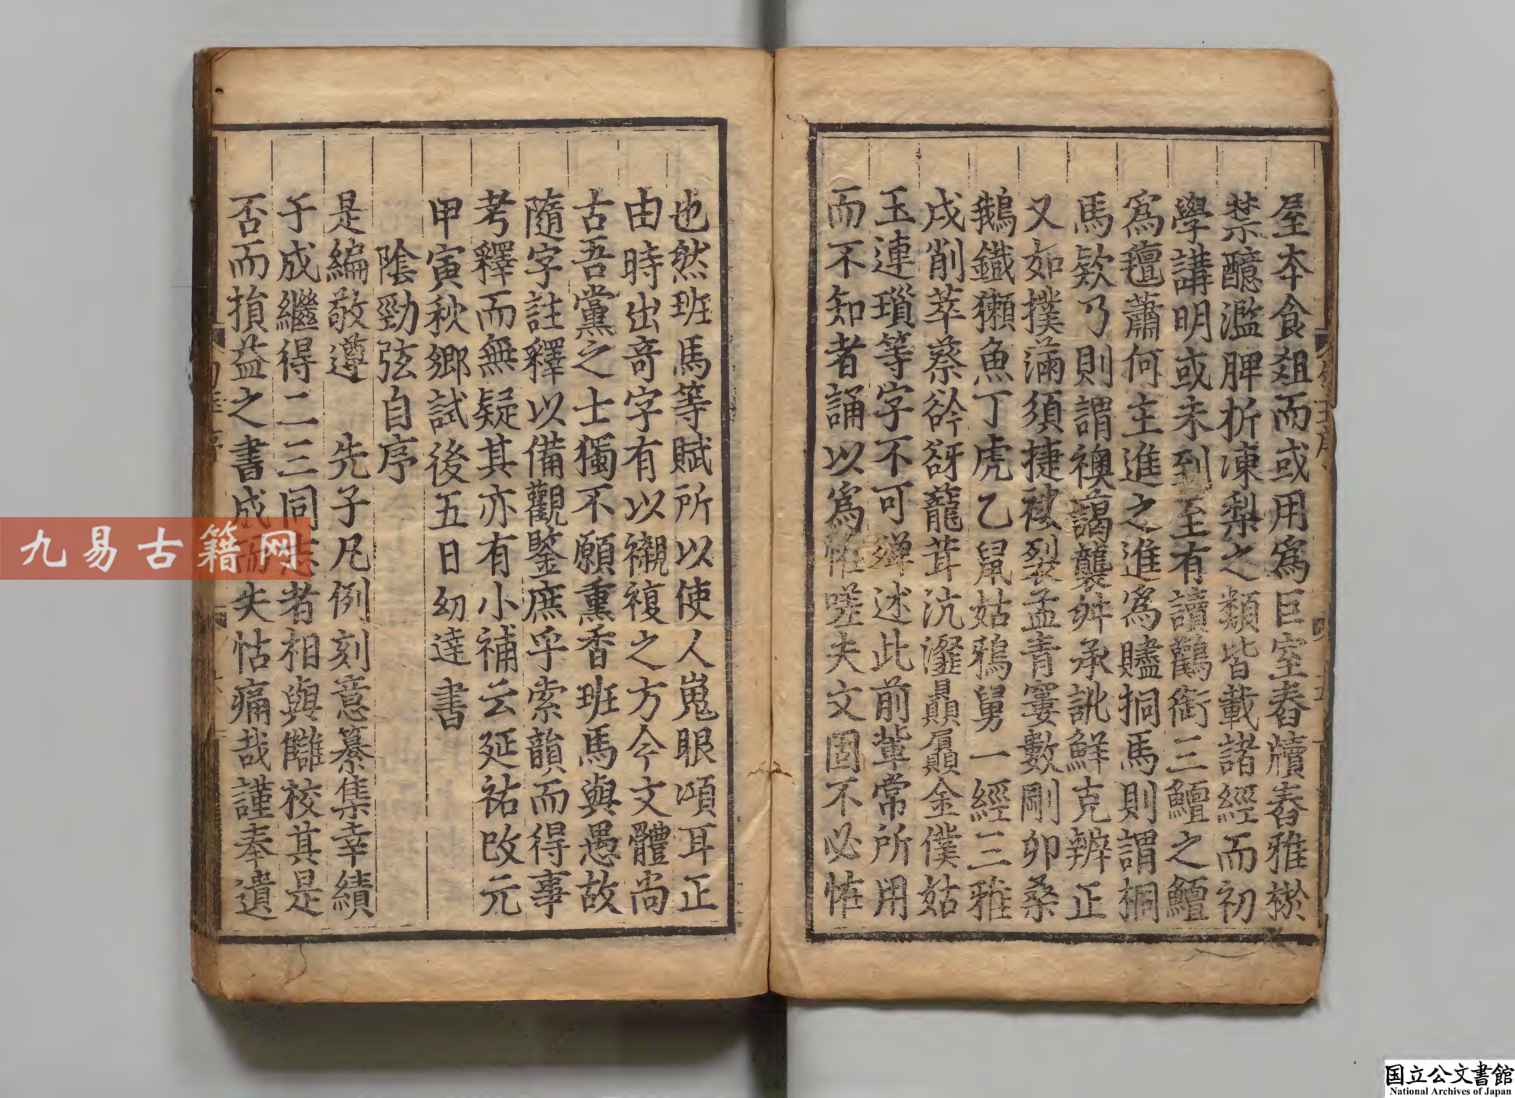 屋本食爼而或用爲巨室舂牘舂雅
禁醷濫脾析凍梨之類皆載諸經而初
學講明或未到至有讀鸛銜三鱣之鱣
爲氊蕭何主進之進爲賮挏馬則謂桐
馬欵乃則謂襖靄襲舛承訛鮮克辨正
又如撲滿須捷襏裂孟青窶數剛卯桑
鵝鐵獺魚丁虎乙鼠姑鴉舅一經三雅
戍削萃蔡谷谺蘢茸沆瀣贔屭金僕姑
玉連瑣等字不可殫述此前輩常所用
而不知者誦以爲恠嗟夫文固不必恠
也然班馬等賦所以使人嵬眼澒耳正
由時出竒字有以襯複之方今文體尚
古吾黨之士獨不願熏香班馬與愚故
隨字註釋以備觀鑒庶乎索韻而得事
考釋而無疑其亦有小補云延祐改元
甲寅秋鄉試後五日幼達書
陰勁弦自序
是編敬遵 先子凡例刻意纂集幸績
于成繼得二三同志者相與讎校其是
否而損益之書成而失怙痛哉謹奉遺
九易古籍网
国立公文書館
National Archives of Japan